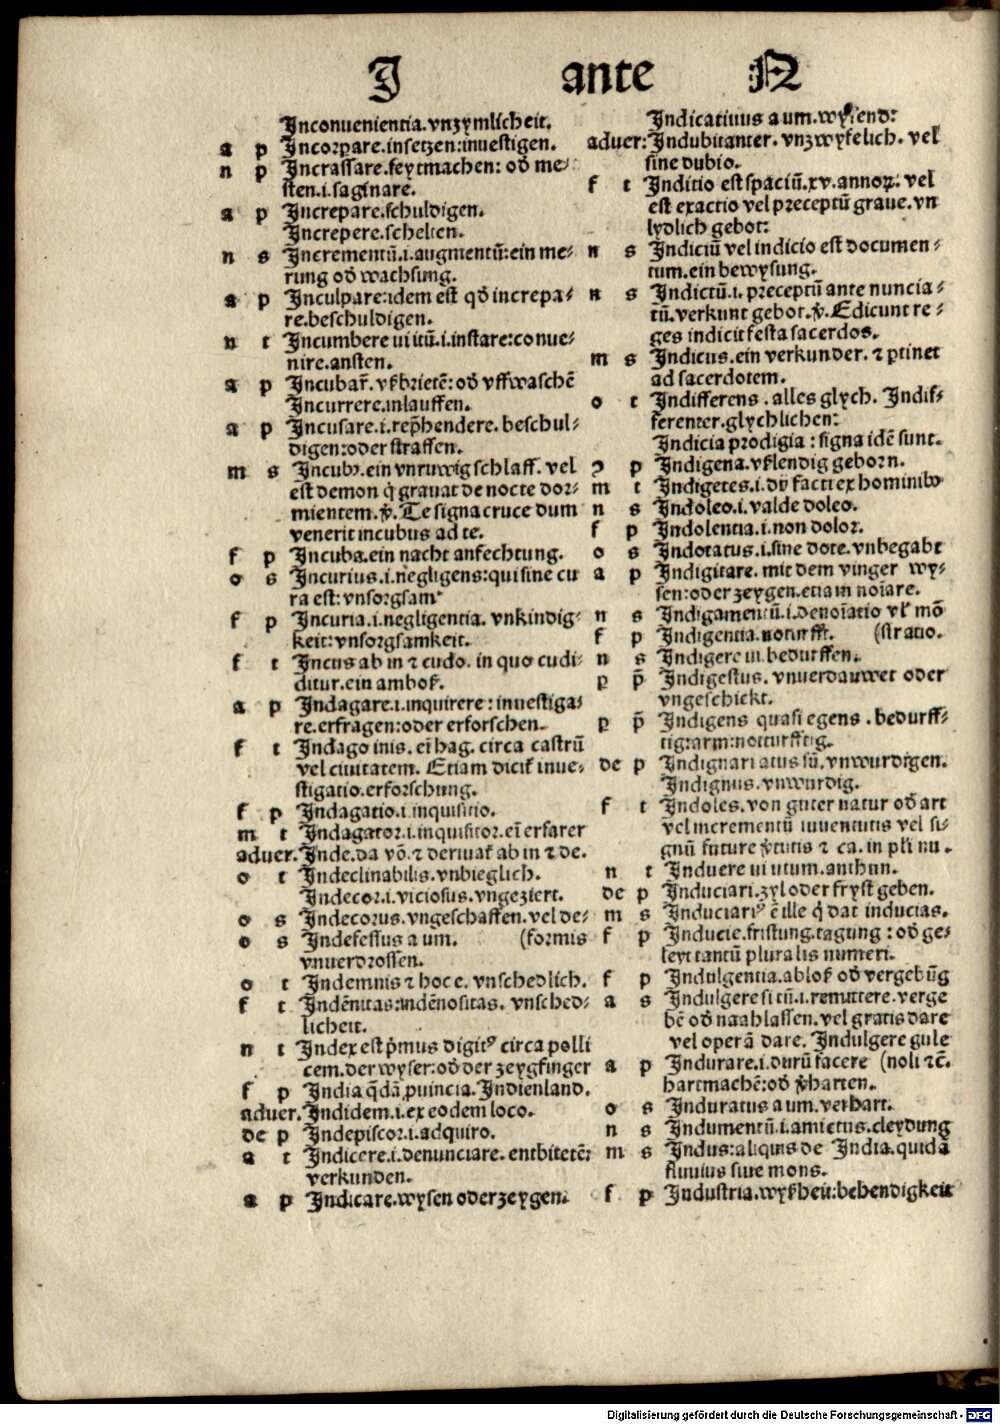 I ante N
Inconuenientia.vnzymlicheit.
a p Incorpare.insetzen:inuestigen.
n p Incrassare.feytmachen: od̕ me⸗
sten.i.saginare.
a p Increpare.schuldigen.
Increpere.schelten.
n s Incrementū.i.augmentū:ein me⸗
rung od̕ wachsung.
a p Inculpare:idem est qd̕ increpa⸗
re.beschuldigen.
n t Incumbere ui itū.i.instare:conue⸗
nire.ansten.
a p Incubar̃. vßbrietē: od̕ vffwaschē
Incurrere.inlauffen.
a p Incusare.i.rep̄hendere. beschul⸗
digen:oder straffen.
m s Incubꝰ.ein vnruwig schlaff. vel
est demon q̇ grauat de nocte dor⸗
mientem.ꝟ. Te signa cruce dum
venerit incubus ad te.
f p Incuba.ein nacht anfechtung.
o s Incurius.i.negligens:qui sine cu
ra est: vnsorgsam
f p Incuria.i.negligentia. vnkindig⸗
keit:vnsorgsamkeit.
f t Incus ab in ⁊ cudo. in quo cudi⸗
ditur.ein amboß.
a p Indagare.i.inquirere: inuestiga⸗
re.erfragen:oder erforschen.
f t Indago inis. eī hag. circa castrū
vel ciuitatem. Etiam dicit̕ inue⸗
stigatio.erforschung.
f p Indagatio.i.inquisitio.
m t Indagator.i.inquisitor.eī erfarer
aduer. Inde.da vō. ⁊ deriuat̕ ab in ⁊ de.
o t Indeclinabilis.vnbieglich.
Indecor.i.viciosus.vngeziert.
o s Indecorus.vngeschaffen.vel de⸗
o s Indefessus a um. (formis
vnuerdrossen.
o t Indemnis ⁊ hoc e. vnschedlich.
f t Indēnitas:indēnositas. vnsched⸗
licheit.
n t Index est p̄mus digitꝰ circa polli
cem.der wyser:od̕ der zeygfinger
f p India q̄dā ꝓuincia.Indienland.
aduer. Indidem.i.ex eodem loco.
de p Indepiscor.i.adquiro.
a t Indicere.i.denunciare. entbitetē:
verkunden.
a p Indicare.wysen oder zeygen.
Indicatiuus a um.wysend:
aduer: Indubitanter. vnzwyfelich. vel
sine dubio.
f t Inditio est spaciū.xv.annoꝝ: vel
est exactio vel preceptū graue.vn
lydlich gebot:
n s Indiciū vel indicio est documen⸗
tum.ein bewysung.
n s Indictū.i. preceptū ante nuncia⸗
tū.verkunt gebot.ꝟ. Edicunt re⸗
ges indicit festa sacerdos.
m s Indicus.ein verkunder. ⁊ ꝑtinet
ad sacerdotem.
o t Indifferens. alles glych. Indif⸗
ferenter.glychlichen:
Indicia prodigia: signa idē sunt.
ꝯ p Indigena.vßlendig geborn.
m t Indigetes.i.dij facti ex hominibꝰ
n s Indoleo.i.valde doleo.
f p Indolentia.i.non dolor.
o s Indotatus.i.sine dote.vnbegabt
a p Indigitare. mit dem vinger wy⸗
sen:oder zeygen.etiam noīare.
n s Indigamentū.i.denoīatio vl̕ mō
f p Indigentia.noturfft. (stratio.
n s Indigere ui.bedurffen.
p p̄ Indigestus. vnuerdauwet oder
vngeschickt.
p p̄ Indigens quasi egens. bedurff⸗
tig:arm:notturfftig.
de p Indignari atus sū.vnwurdigen.
Indignus.vnwurdig.
f t Indoles.von guter natur od̕ art
vel incrementū iuuentutis vel si⸗
gnū future ꝟtutis ⁊ ca. in pli nu.
n t Induere ui utum.anthun.
de p Induciari.zyl oder fryst geben.
m s Induciariꝰ ē ille q̇ dat inducias.
f p Inducie.fristung.tagung: od̕ ge⸗
leyt tantū pluralis numeri.
f p Indulgentia.ablos od̕ vergebūg
a s Indulgere si tū.i.remittere.verge
bē od̕ naahlassen.vel gratis dare
vel operā dare. Indulgere gule
a p Indurare.i.durū facere (noli ⁊c̄.
hartmachē:od̕ ꝟharten.
o s Induratus a um.verhart.
n s Indumentū.i.amictus.cleydung
m s Indus:aliquis de India.quidā
fluuius siue mons.
f p Industria.wyßheit:behendigkeit
Digitalisierung gefördert durch die Deutsche Forschungsgemeinschaft - DFG